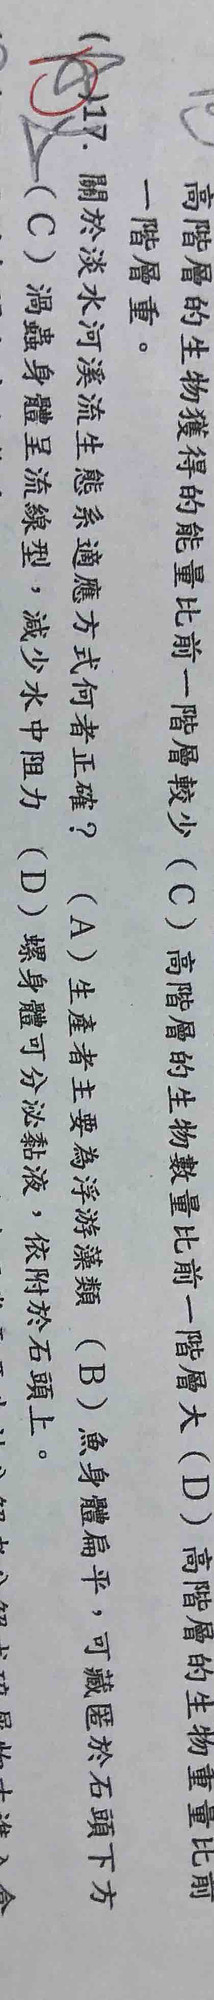 高階層的生物獲得的能量比前一階層較少（C）高階層的生物數量比前一階層大（D）高階層的生物重量比前
一階層重。
17. 關於淡水河溪流生態系適應方式何者正確？（A）生產者主要為浮游藻類（B）魚身體扁平，可藏匿於石頭下方
（C）渦蟲身體呈流線型，減少水中阻力（D）螺身體可分泌黏液，依附於石頭上。